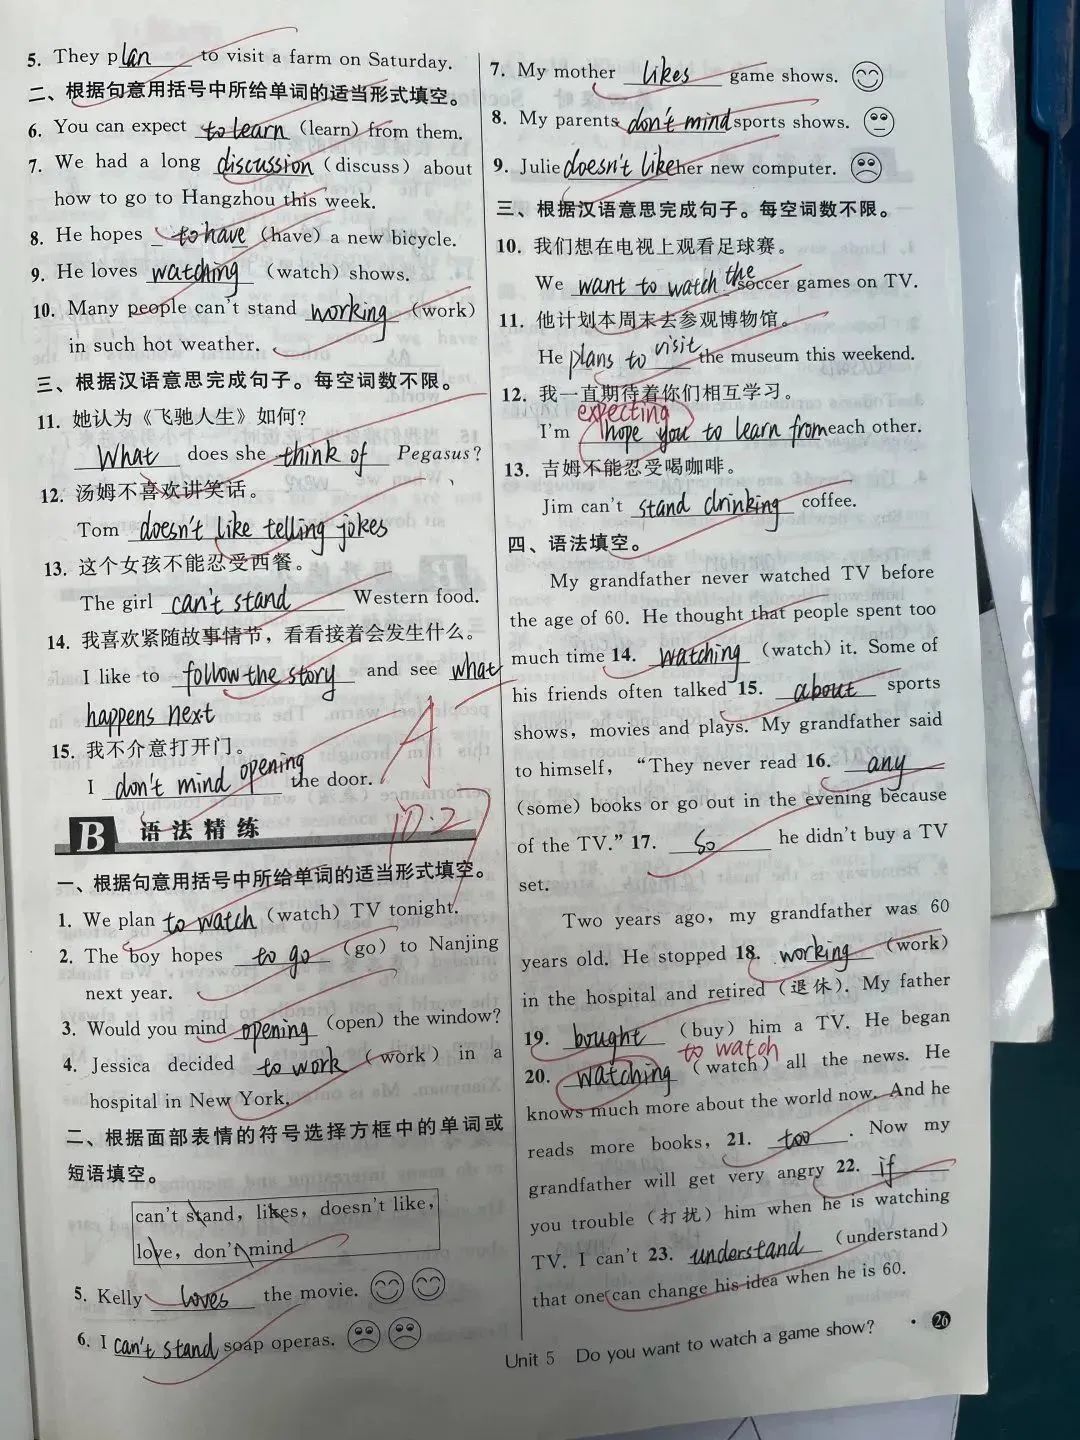 5. They plan to visit a farm on Saturday.
二、根据句意用括号中所给单词的适当形式填空。
6. You can expect to learn (learn) from them.
7. We had a long discussion (discuss) about
how to go to Hangzhou this week.
8. He hopes to have (have) a new bicycle.
9. He loves watching (watch) shows.
10. Many people can't stand working (work)
in such hot weather.
三、根据汉语意思完成句子。每空词数不限。
11. 她认为《飞驰人生》如何?
What does she think of Pegasus?
12. 汤姆不喜欢讲笑话。
Tom doesn't like telling jokes
13. 这个女孩不能忍受西餐。
The girl can't stand Western food.
14. 我喜欢紧随故事情节，看看接着会发生什么。
I like to follow the story and see what
happens next
15. 我不介意打开门。
I don't mind opening the door.
A
10.27
B 语法精练
一、根据句意用括号中所给单词的适当形式填空。
1. We plan to watch (watch) TV tonight.
2. The boy hopes to go (go) to Nanjing
next year.
3. Would you mind opening (open) the window?
4. Jessica decided to work (work) in a
hospital in New York.
二、根据面部表情的符号选择方框中的单词或
短语填空。
can't stand, likes, doesn't like,
love, don't mind
5. Kelly loves the movie.
6. I can't stand soap operas.
7. My mother likes game shows.
8. My parents don't mind sports shows.
9. Julie doesn't like her new computer.
三、根据汉语意思完成句子。每空词数不限。
10. 我们想在电视上观看足球赛。
We want to watch the soccer games on TV.
11. 他计划本周末去参观博物馆。
He plans to visit the museum this weekend.
12. 我一直期待着你们相互学习。
expecting
I'm hope you to learn from each other.
13. 吉姆不能忍受喝咖啡。
Jim can't stand drinking coffee.
四、语法填空。
My grandfather never watched TV before
the age of 60. He thought that people spent too
much time 14. watching (watch) it. Some of
his friends often talked 15. about sports
shows, movies and plays. My grandfather said
to himself, “They never read 16. any
(some) books or go out in the evening because
of the TV.” 17. So he didn't buy a TV
set.
Two years ago, my grandfather was 60
years old. He stopped 18. working (work)
in the hospital and retired (退休). My father
19. bought (buy) him a TV. He began
to watch
20. watching (watch) all the news. He
knows much more about the world now. And he
reads more books, 21. too. Now my
grandfather will get very angry 22. if
you trouble (打扰) him when he is watching
TV. I can't 23. understand (understand)
that one can change his idea when he is 60.
Unit 5 Do you want to watch a game show? · 26